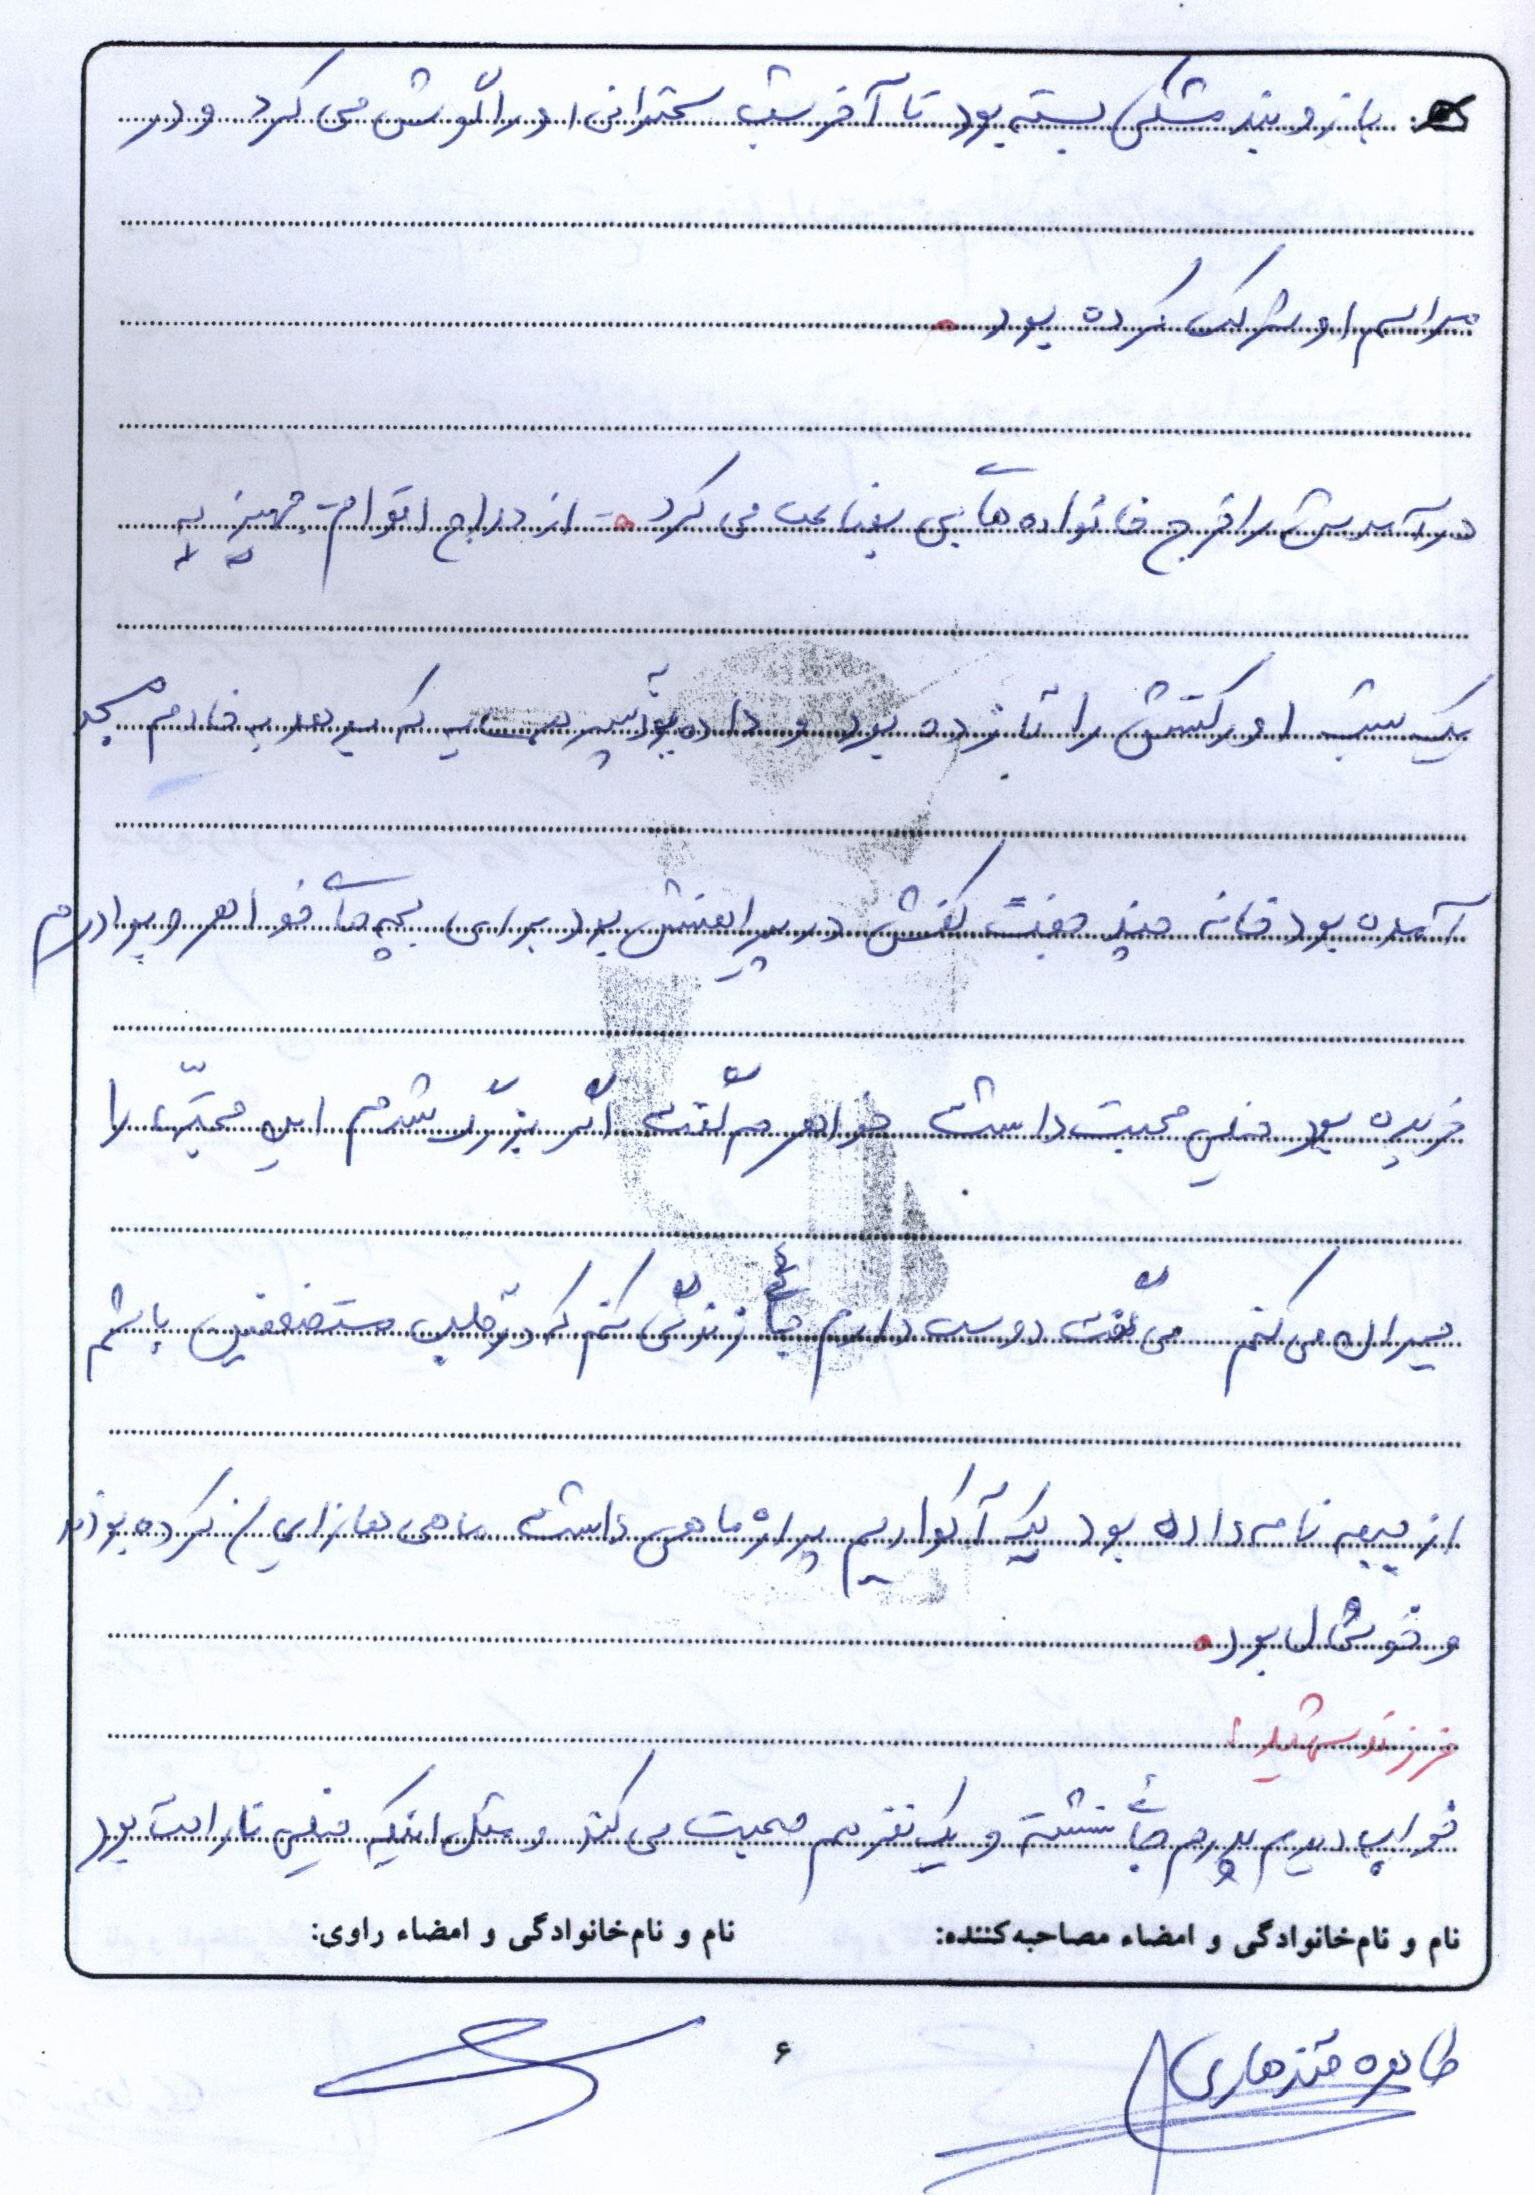 بازوبند مشکی بسته بود تا آخر شب سخنرانی او را گوش می کرد و در
مراسم او شرکت کرده بود .
درآمدش را خرج خانواده های بی بضاعت می کرد . از دواج اقوام جهیزیه
یک شب اورکتش را تا زده بود و داده بود به که به خادم مسجد
آمده بود خانه چند جفت کفش در پیراهنش بود برای بچه های خواهر و برادرم
خریده بود خیلی محبت داشت خواهرم گفت اگر بزرگ شدم این محبتها را
جبران می کنم می گفت دوست دارم جائی زندگی کنم که در قلب مستضعفین باشم
از بیمه نامه داده بود یک آکواریم پر از ماهی داشت ماهی ها زایمان کرده بودند
و خوشحال بود .
فرزند شهید :
خواب دیدم پدرم جائی نشسته و یک نفر هم صحبت می کند و مثل اینکه خیلی ناراحت بود
نام و نام‌خانوادگی و امضاء مصاحبه‌کننده: نام و نام‌خانوادگی و امضاء راوی:
طاهره قندهاری
۶